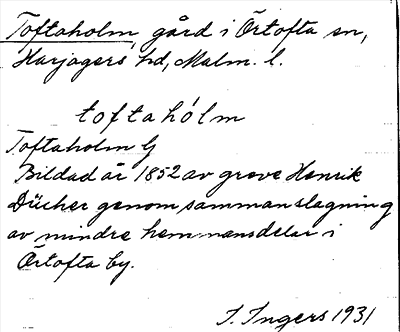 Toftaholm, gård i Örtofta sn,
Harjagers hd, Malm. l.
toftahólm
Toftaholm G
Bildad år 1852 av greve Henrik
Dücher genom sammanslagning
av mindre hemmansdelar i
Örtofta by.
I. Ingers 1931